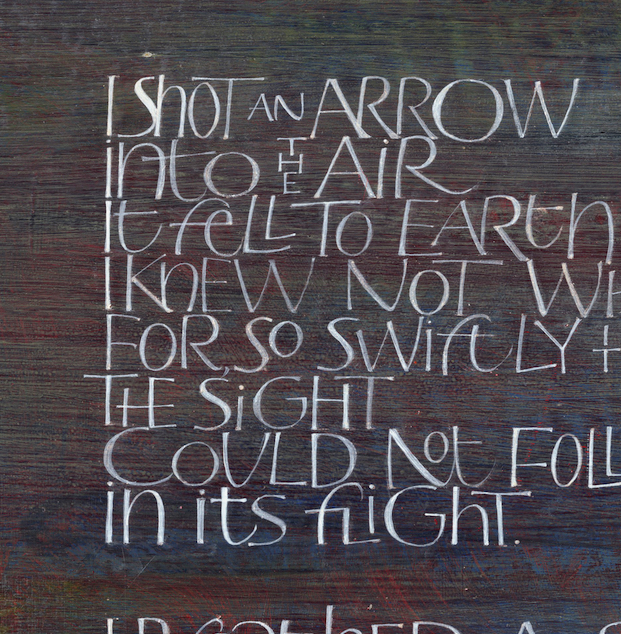 I ShOT AN ARROW
into THE AiR
It fell To EARth
I KnEW NoT WH
FOR, So SWiftLY t
THE SiGHT
COULD Not FOLL
in its fLiGhT.
I BREAthED A S